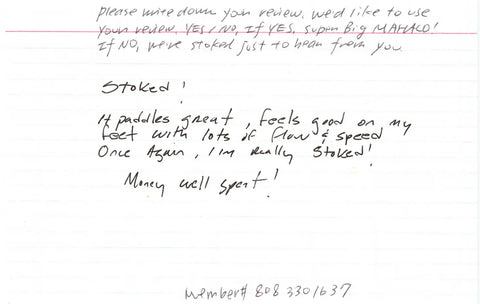 please write down your review. we'd like to use
your review. YES/NO, If YES, super Big MAHALO!
If NO, we're stoked just to hear from you.
Stoked!
It paddles great, feels good on my
feet with lots of flow & speed
Once Again, I'm really Stoked!
Money well spent!
Member# 808 3301637